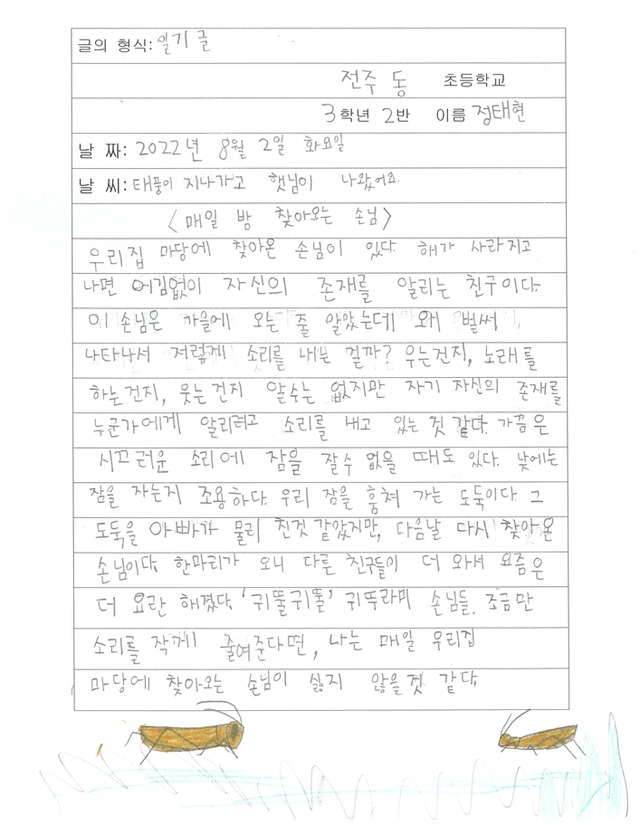 글의 형식: 일기글
전주 동 초등학교
3학년 2반 이름 정태현
날 짜: 2022년 8월 2일 화요일
날 씨: 태풍이 지나가고 햇님이 나왔어요.
<매일 밤 찾아오는 손님>
우리집 마당에 찾아온 손님이 있다. 해가 사라지고
나면 어김없이 자신의 존재를 알리는 친구이다.
이 손님은 가을에 오는 줄 알았는데 왜 벌써
나타나서 저렇게 소리를 내는 걸까? 우는건지, 노래를
하는건지, 웃는건지 알수는 없지만 자기 자신의 존재를
누군가에게 알리려고 소리를 내고 있는 것 같다. 가끔은
시끄러운 소리에 잠을 잘수 없을 때도 있다. 낮에는
잠을 자는지 조용하다. 우리 잠을 훔쳐 가는 도둑이다. 그
도둑을 아빠가 물리 친것 같았지만, 다음날 다시 찾아온
손님이다. 한마리가 오니 다른 친구들이 더 와서 요즘은
더 요란 해졌다. '귀뚤귀뚤' 귀뚜라미 손님들. 조금만
소리를 작게 줄여준다면, 나는 매일 우리집
마당에 찾아오는 손님이 싫지 않을것 같다.